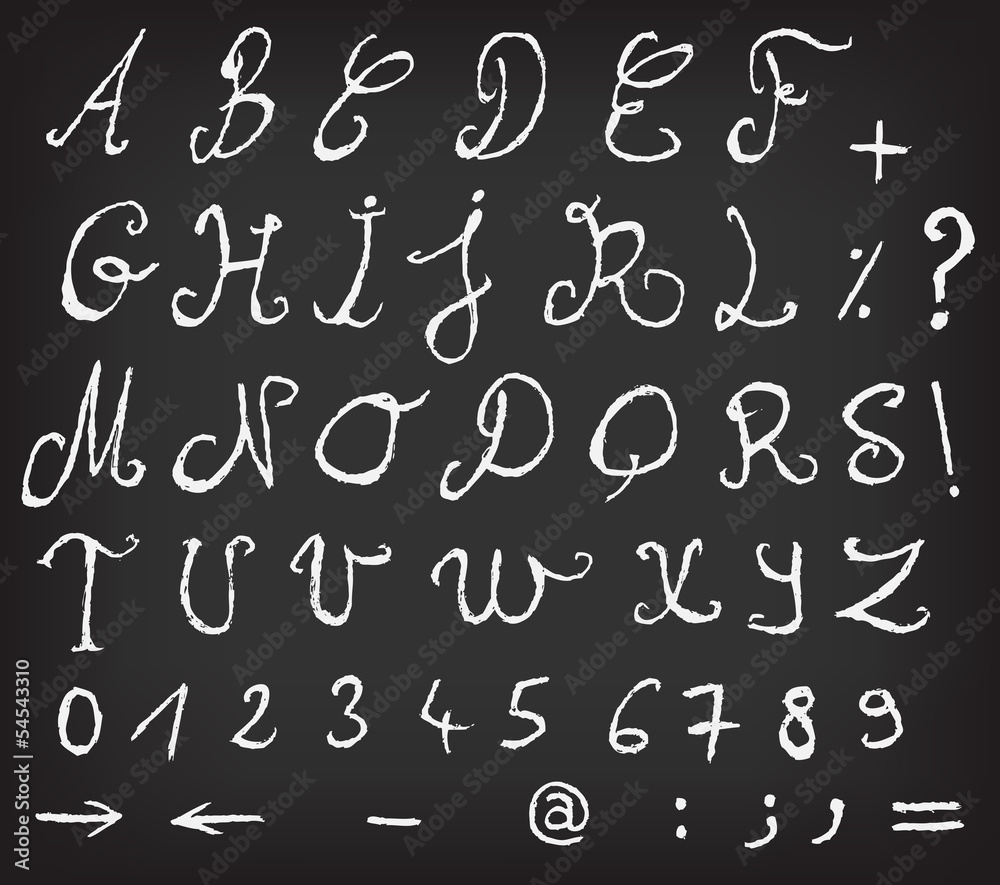 A B C D E F +
G H I J K L % ?
M N O P Q R S !
T U V W X Y Z
0 1 2 3 4 5 6 7 8 9
→ ← - @ : ; , =
Adobe Stock | #54543310